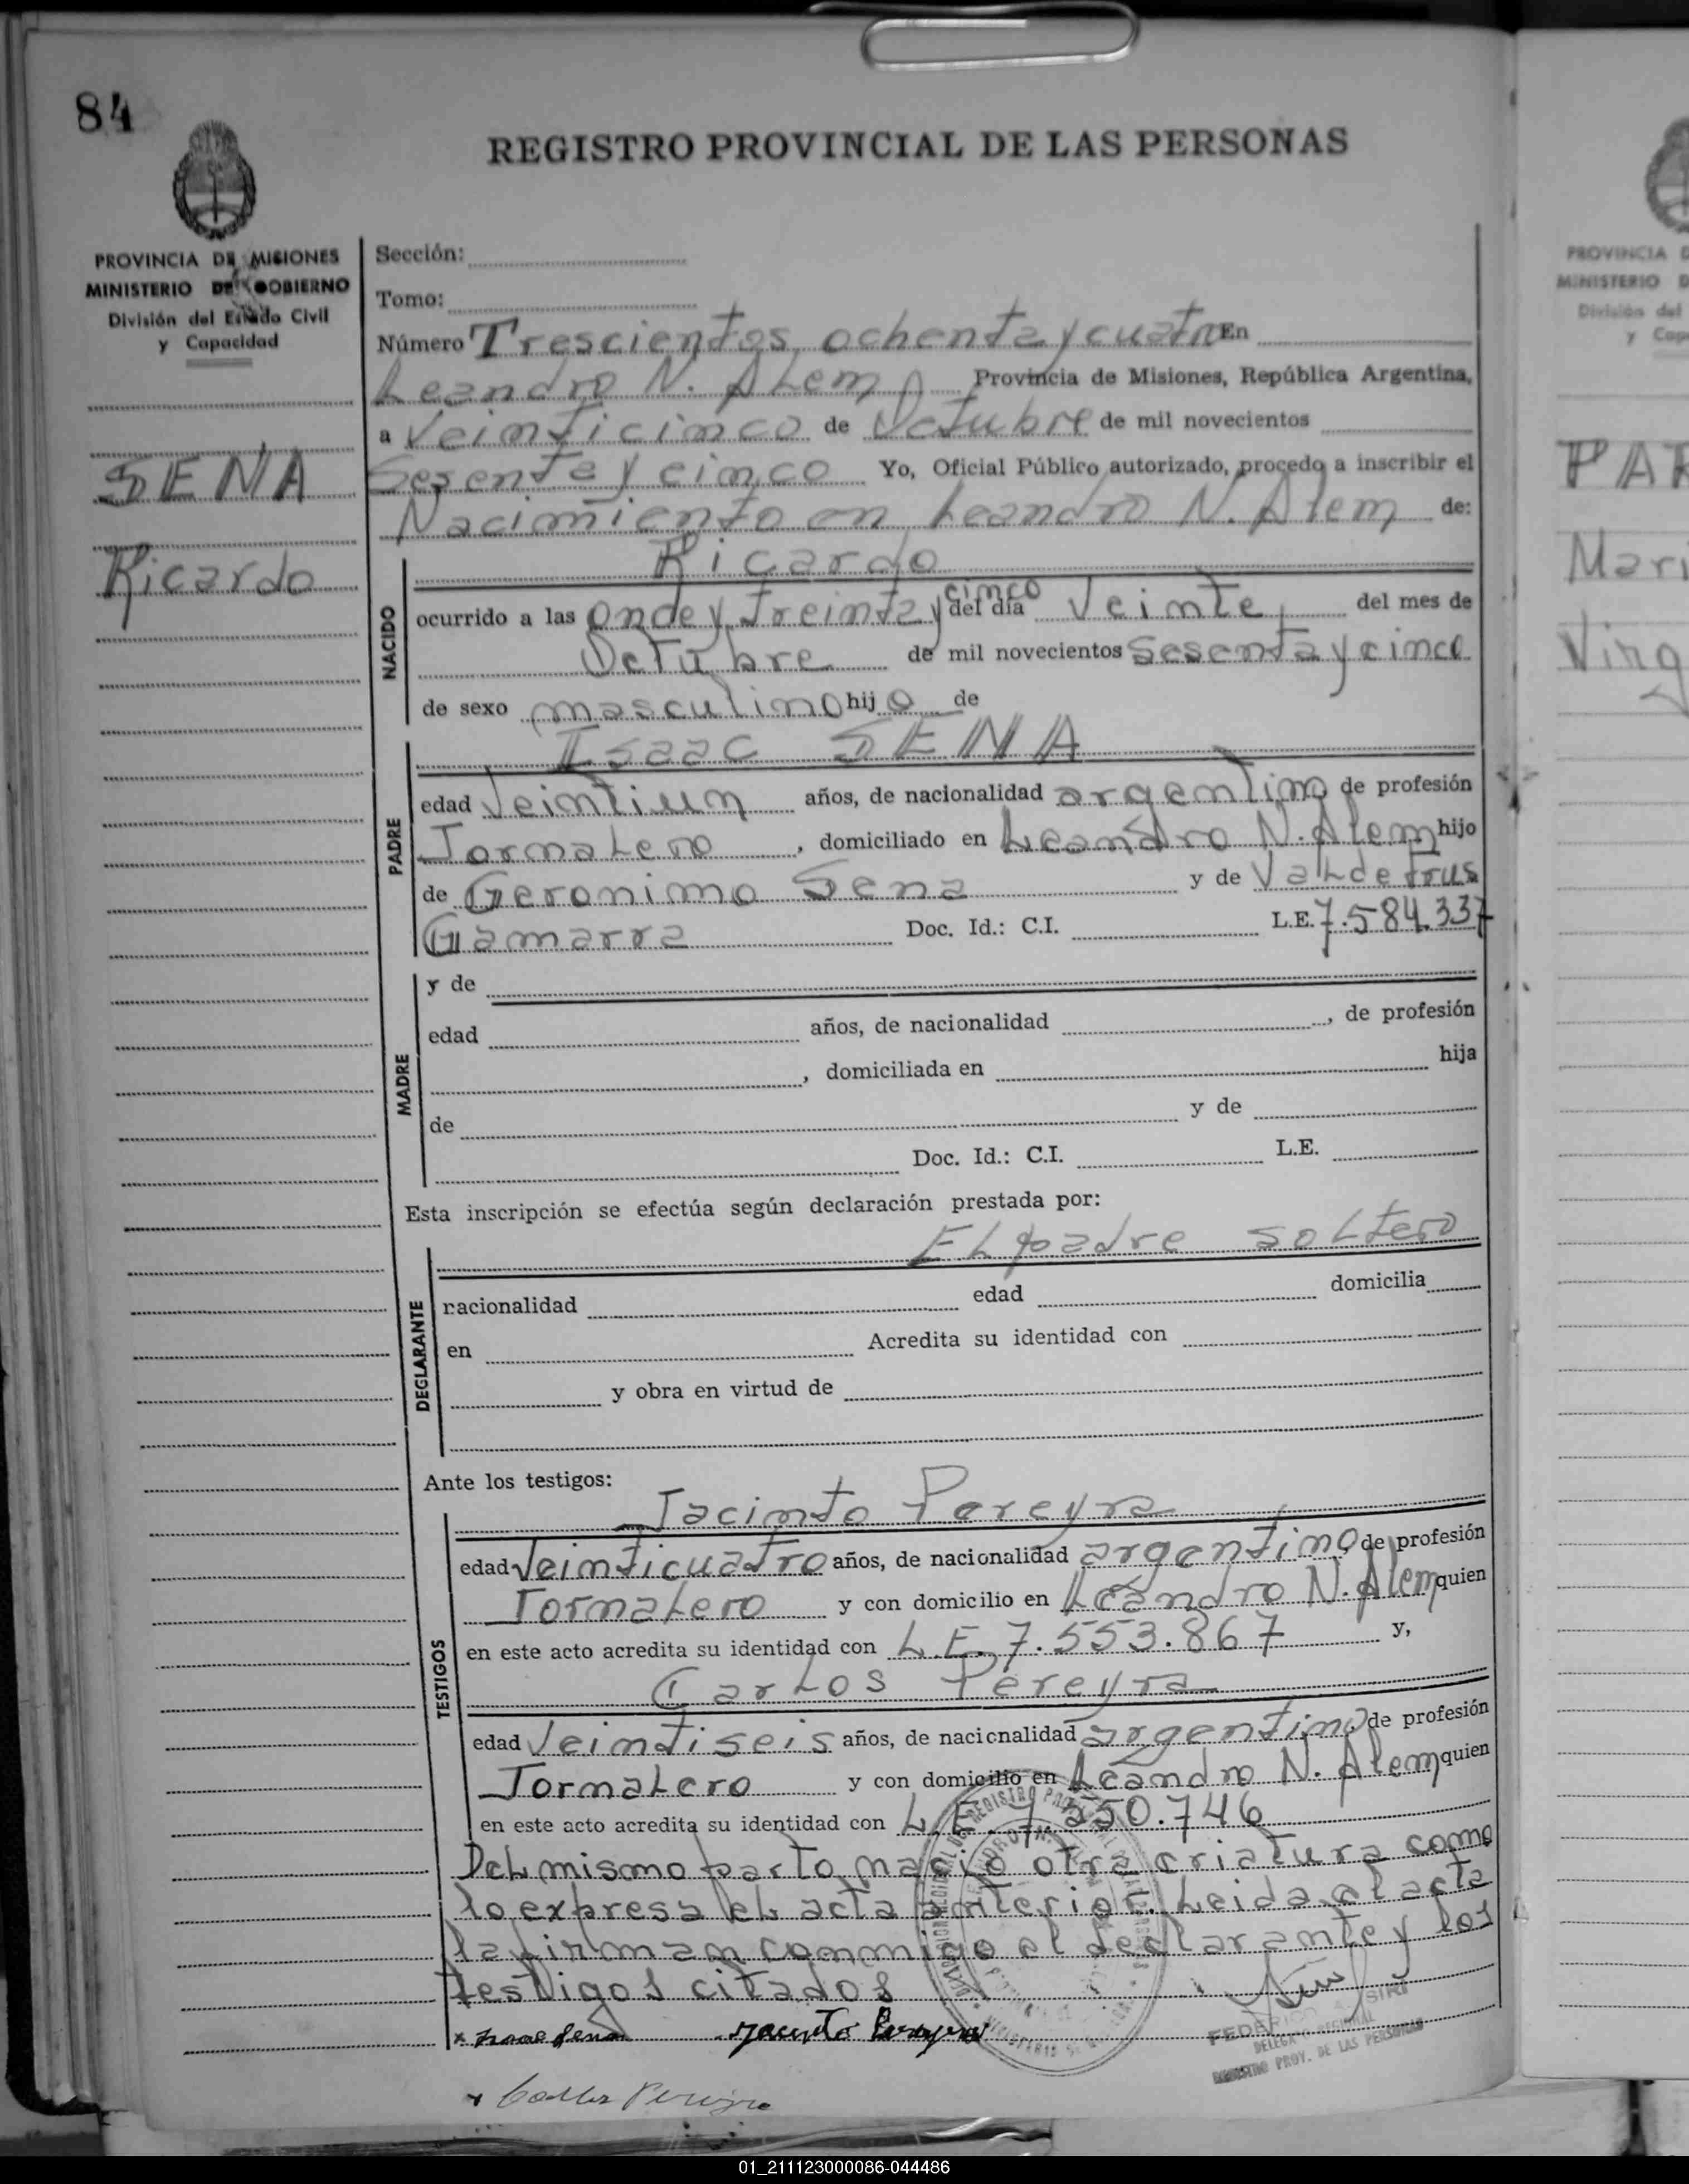 84
REGISTRO PROVINCIAL DE LAS PERSONAS
PROVINCIA DE MISIONES
MINISTERIO DE GOBIERNO
División del Estado Civil
y Capacidad
SENA
Ricardo
Sección:
Tomo:
Número Trescientos ochenta y cuatro En
Leandro N. ALem Provincia de Misiones, República Argentina,
a Veinticinco de Octubre de mil novecientos
Sesenta y cinco Yo, Oficial Público autorizado, procedo a inscribir el
Nacimiento en Leandro N. Alem de:
Ricardo
NACIDO
ocurrido a las onde y treinta y cinco del día Veinte del mes de
Octubre de mil novecientos sesenta y cinco
de sexo masculino hijo de
PADRE
Isaac SENA
edad Veintiun años, de nacionalidad argentino de profesión
Jornalero, domiciliado en Leandro N. Alem hijo
de Geronimo Sena y de Valdetrus
Gamarra Doc. Id.: C.I. L.E. 7.584.337
MADRE
y de
edad años, de nacionalidad , de profesión
, domiciliada en hija
de y de
Doc. Id.: C.I. L.E.
Esta inscripción se efectúa según declaración prestada por:
EL padre soltero
DECLARANTE
nacionalidad edad domicilia
en Acredita su identidad con
y obra en virtud de
Ante los testigos:
Jacinto Pereyra
TESTIGOS
edad Veinticuatro años, de nacionalidad argentino de profesión
Jornalero y con domicilio en Leandro N. Alem quien
en este acto acredita su identidad con L.E. 7.553.867 y,
Carlos Pereyra
edad Veintiseis años, de nacionalidad argentino de profesión
Jornalero y con domicilio en Leandro N. Alem quien
en este acto acredita su identidad con L.E. 7.550.746
DeL mismo parto nacio otra criatura como
lo expresa el acta anterior. Leida el acta
la firman conmigo el declarante y los
testigos citados
x Isaac Sena Jacinto Pereyra
FEDERICO SIRI
DELEGADO REGIONAL
REGISTRO PROV. DE LAS PERSONAS
x Carlos Pereyra
PROVINCIA D
MINISTERIO D
División del
y Cap
PAR
Mari
Virg
01_211123000086-044486